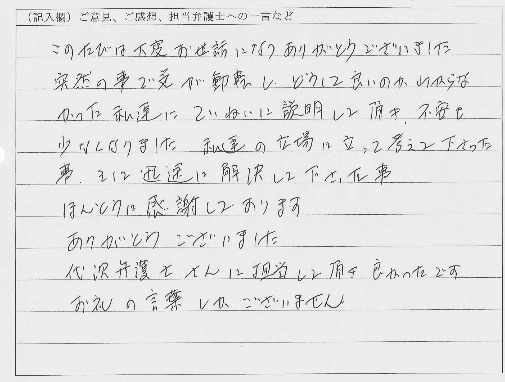 (記入欄) ご意見、ご感想、担当弁護士への一言など
このたびは大変お世話になりありがとうございました
突然の事で気が動転し、どうして良いのかわからな
かった私達にていねいに説明して頂き、不安も
少なくなりました 私達の立場に立って考えて下さった
事、また迅速に解決して下さった事
ほんとうに感謝しております
ありがとう ございました
代沢弁護士さんに担当して頂き良かったです
お礼の言葉しかございません